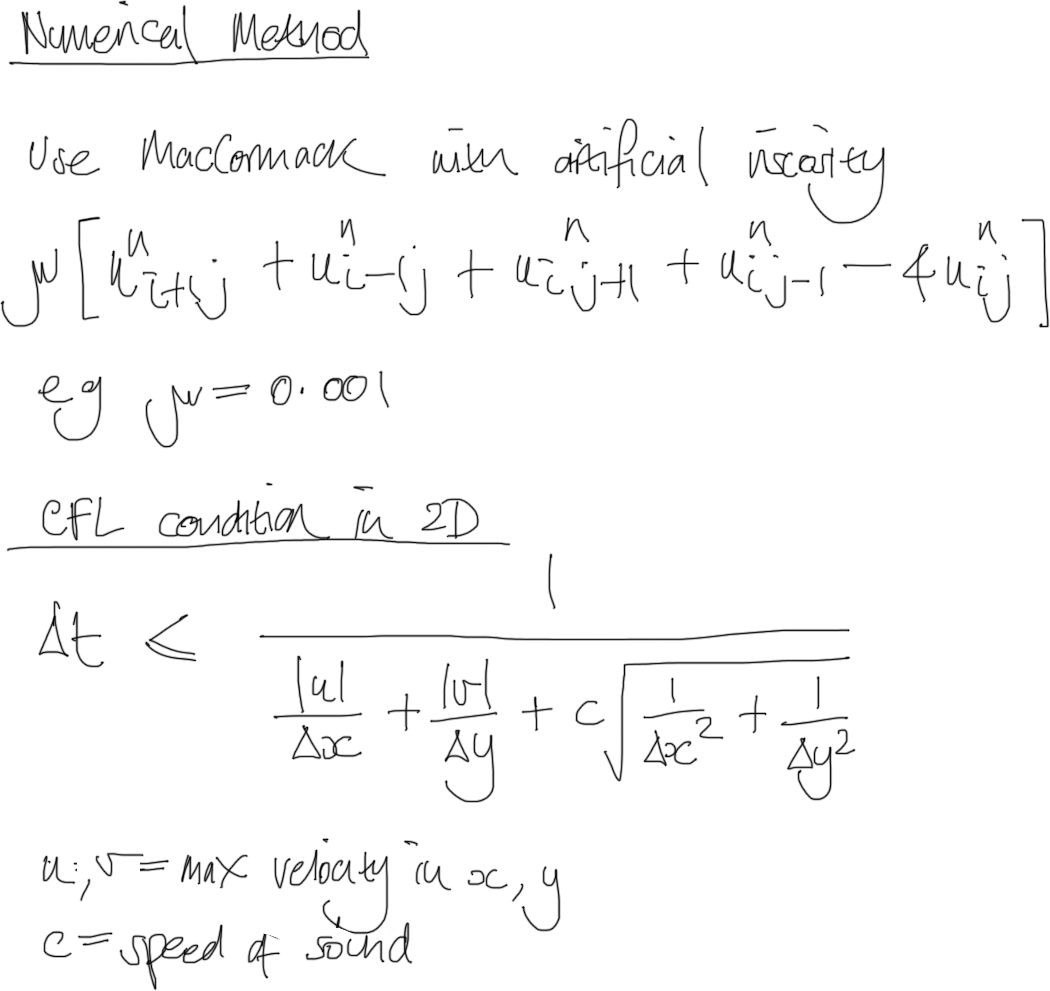 Numerical Method
Use MacCormack with artificial viscosity
μ [ u^n_{i+1j} + u^n_{i-1j} + u^n_{ij+1} + u^n_{ij-1} - 4u^n_{ij} ]
eg μ = 0.001
CFL condition in 2D
Δt ≤ 1 / ( |u|/Δx + |v|/Δy + c√( 1/Δx² + 1/Δy² ) )
u, v = max velocity in x, y
c = speed of sound